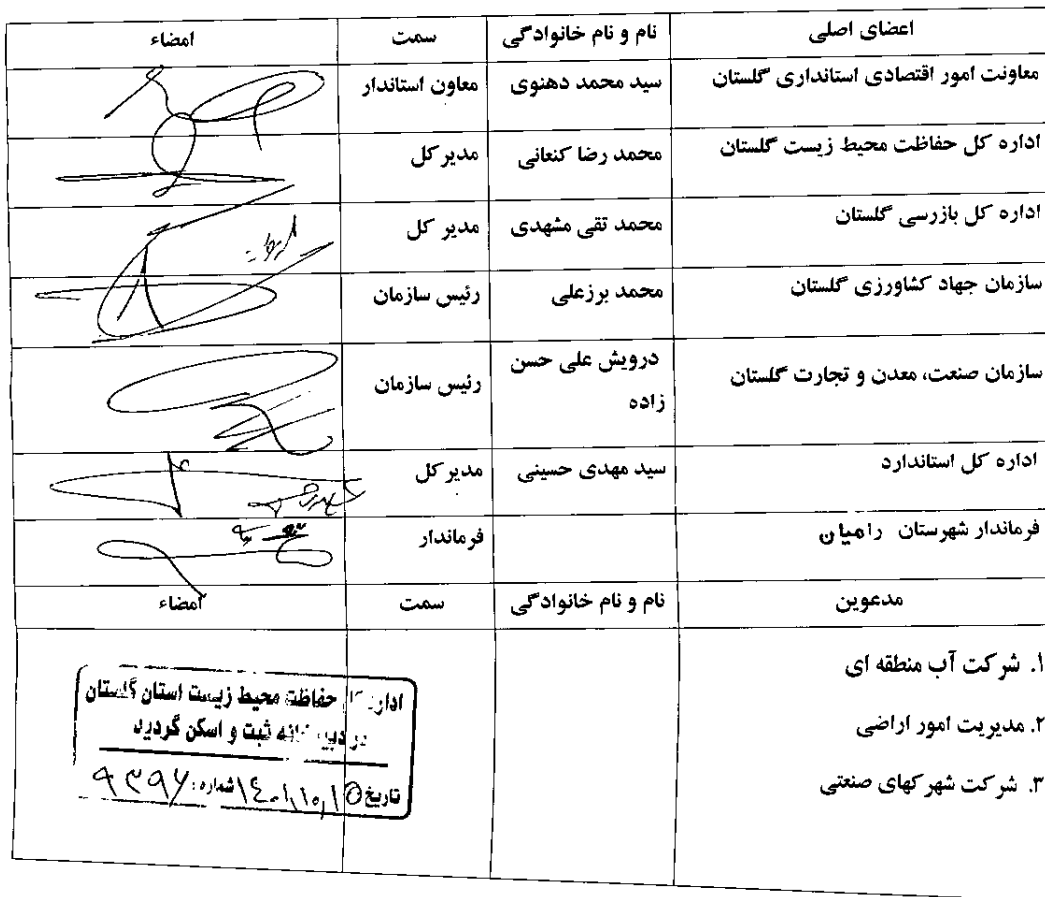 اعضای اصلی نام و نام خانوادگی سمت امضاء
معاونت امور اقتصادی استانداری گلستان سید محمد دهنوی معاون استاندار
اداره کل حفاظت محیط زیست گلستان محمد رضا کنعانی مدیر کل
اداره کل بازرسی گلستان محمد تقی مشهدی مدیر کل
سازمان جهاد کشاورزی گلستان محمد برزعلی رئیس سازمان
سازمان صنعت، معدن و تجارت گلستان درویش علی حسن رئیس سازمان
زاده
اداره کل استاندارد سید مهدی حسینی مدیر کل
فرماندار شهرستان رامیان فرماندار
مدعوین نام و نام خانوادگی سمت امضاء
۱. شرکت آب منطقه ای
۲. مدیریت امور اراضی
۳. شرکت شهرکهای صنعتی
حفاظت محیط زیست استان گلستان
ثبت و اسکن گردید
تاریخ شماره: